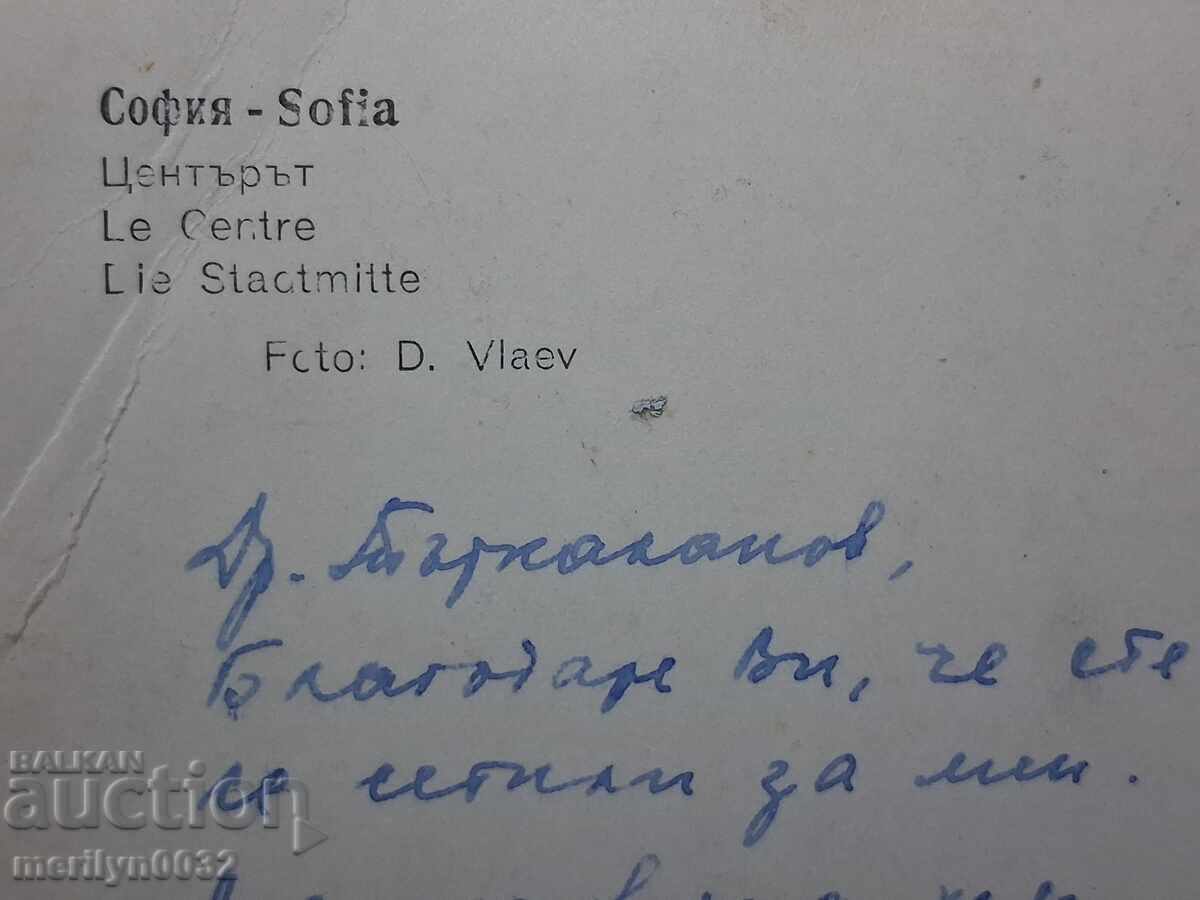 София - Sofia
Центърът
Le Centre
Die Stadtmitte
Foto: D. Vlaev
Др.
Благодаря Ви, че сте
се сетили за мен.
BALKAN
auction
merilyn0032